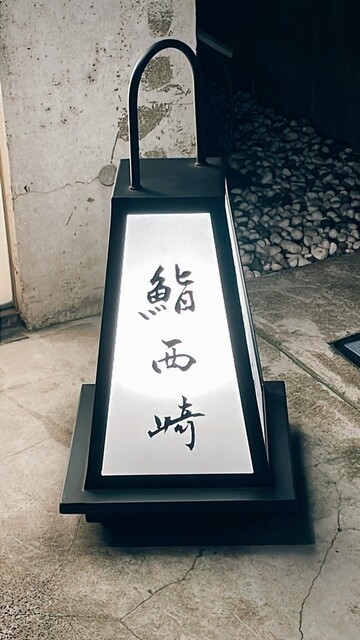 鮨
西
崎